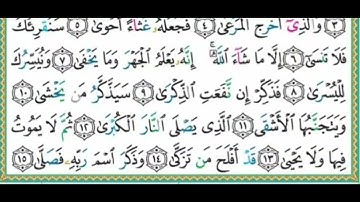 ٣ وَالَّذِىٓ اَخْرَجَ الْمَرْعٰى ٤ فَجَعَلَهٗ غُثَآءً اَحْوٰى ٥ سَنُقْرِئُكَ
فَلَا تَنْسٰٓى ٦ اِلَّا مَا شَآءَ اللّٰهُ ؕ اِنَّهٗ يَعْلَمُ الْجَهْرَ وَمَا يَخْفٰى ٧ وَنُيَسِّرُكَ
لِلْيُسْرٰى ٨ فَذَكِّرْ اِنْ نَّفَعَتِ الذِّكْرٰى ٩ سَيَذَّكَّرُ مَنْ يَّخْشٰى ١٠
وَيَتَجَنَّبُهَا الْاَشْقَى ١١ الَّذِى يَصْلَى النَّارَ الْكُبْرٰى ١٢ ثُمَّ لَا يَمُوْتُ
فِيْهَا وَلَا يَحْيٰى ١٣ قَدْ اَفْلَحَ مَنْ تَزَكّٰى ١٤ وَذَكَرَ اسْمَ رَبِّهٖ فَصَلّٰى ١٥